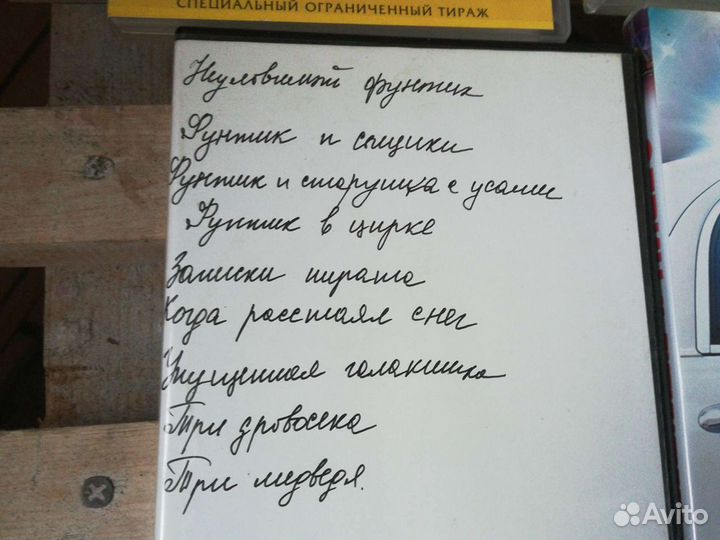 СПЕЦИАЛЬНЫЙ ОГРАНИЧЕННЫЙ ТИРАЖ
Неуловимый фунтик
Фунтик и сыщики
Фунтик и старушка с усами
Фунтик в цирке
Записки пирата
Когда растаял снег
Упущенная галактика
Три дровосека
Три медведя.
Avito